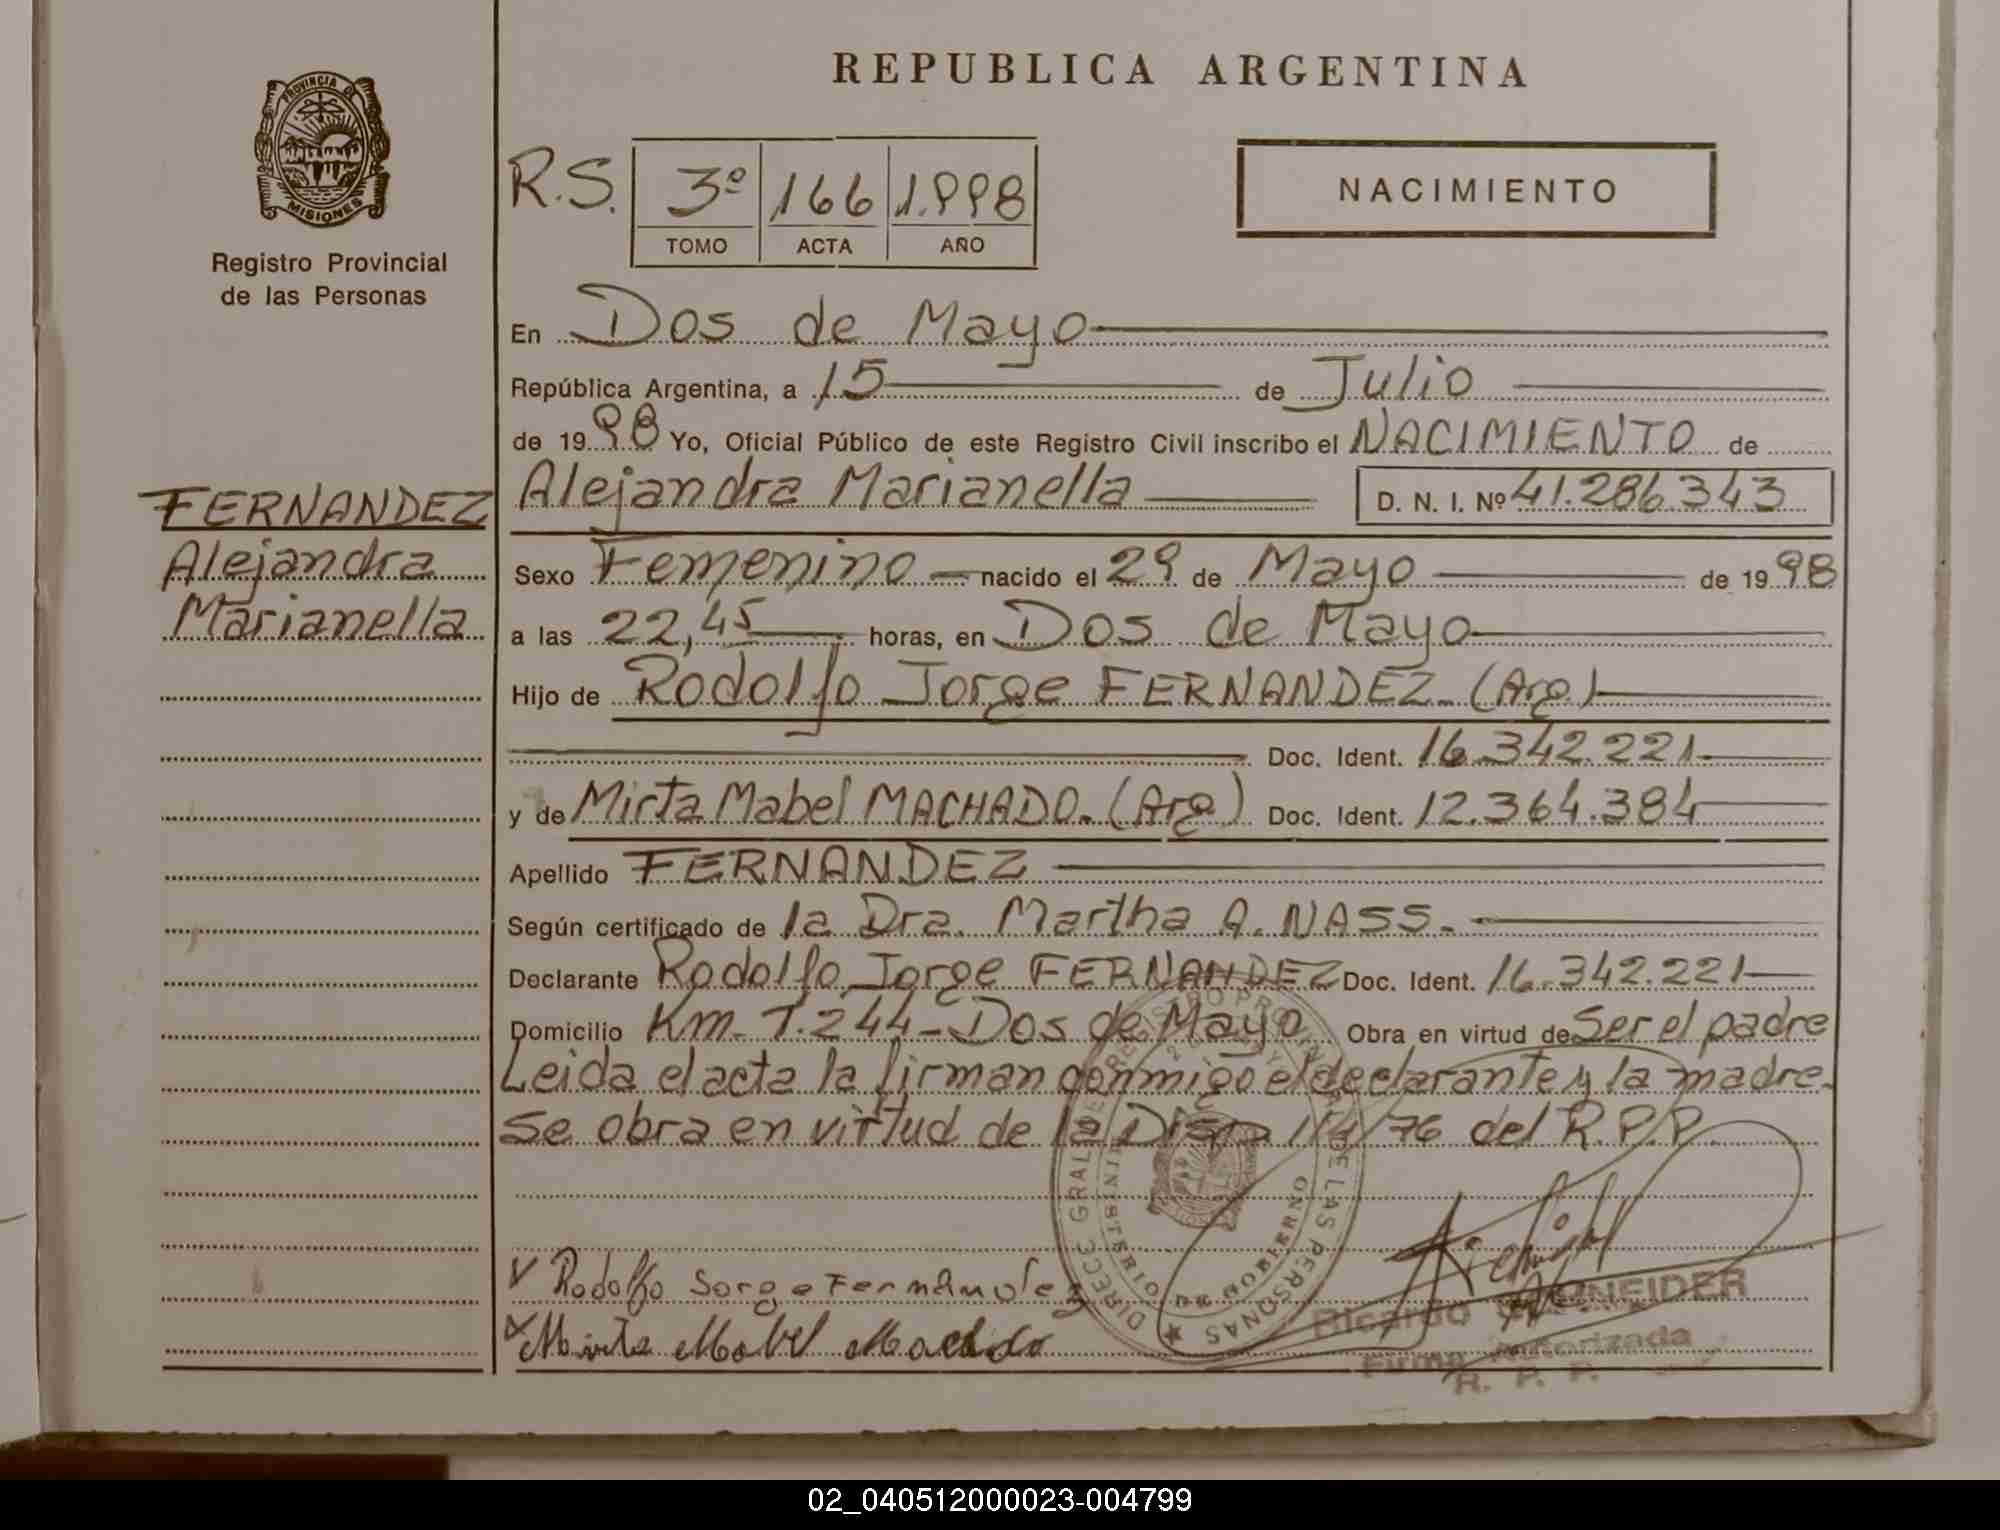 REPUBLICA ARGENTINA
PROVINCIA DE
MISIONES
Registro Provincial
de las Personas
R.S. 3º 166 1.998
TOMO ACTA AÑO
NACIMIENTO
En Dos de Mayo
República Argentina, a 15 de Julio
de 1998 Yo, Oficial Público de este Registro Civil inscribo el NACIMIENTO de
Alejandra Marianella D. N. I. Nº 41.286.343
FERNANDEZ
Alejandra
Marianella
Sexo Femenino nacido el 29 de Mayo de 1998
a las 22,45 horas, en Dos de Mayo
Hijo de Rodolfo Jorge FERNANDEZ. (Arg.)
Doc. Ident. 16.342.221
y de Mirta Mabel MACHADO. (Arg) Doc. Ident. 12.364.384
Apellido FERNANDEZ
Según certificado de la Dra. Martha A. NASS.
Declarante Rodolfo Jorge FERNANDEZ Doc. Ident. 16.342.221
Domicilio Km. 1.244 - Dos de Mayo Obra en virtud de Ser el padre
Leida el acta la firman conmigo el declarante y la madre.
Se obra en virtud de la Disp. 1/4/76 del R.P.P.
DIRECC. GRAL. DE REGISTRO PROVINCIAL DE LAS PERSONAS
MINISTERIO DE GOBIERNO
Rodolfo Jorge Fernández
Mirta Mabel Machado
Ricardo SCHNEIDER
Firma Autorizada
R. P. P.
02_040512000023-004799